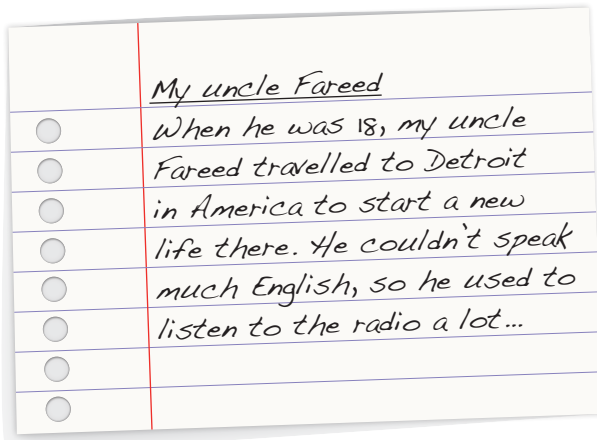 My uncle Fareed
When he was 18, my uncle
Fareed travelled to Detroit
in America to start a new
life there. He couldn't speak
much English, so he used to
listen to the radio a lot...